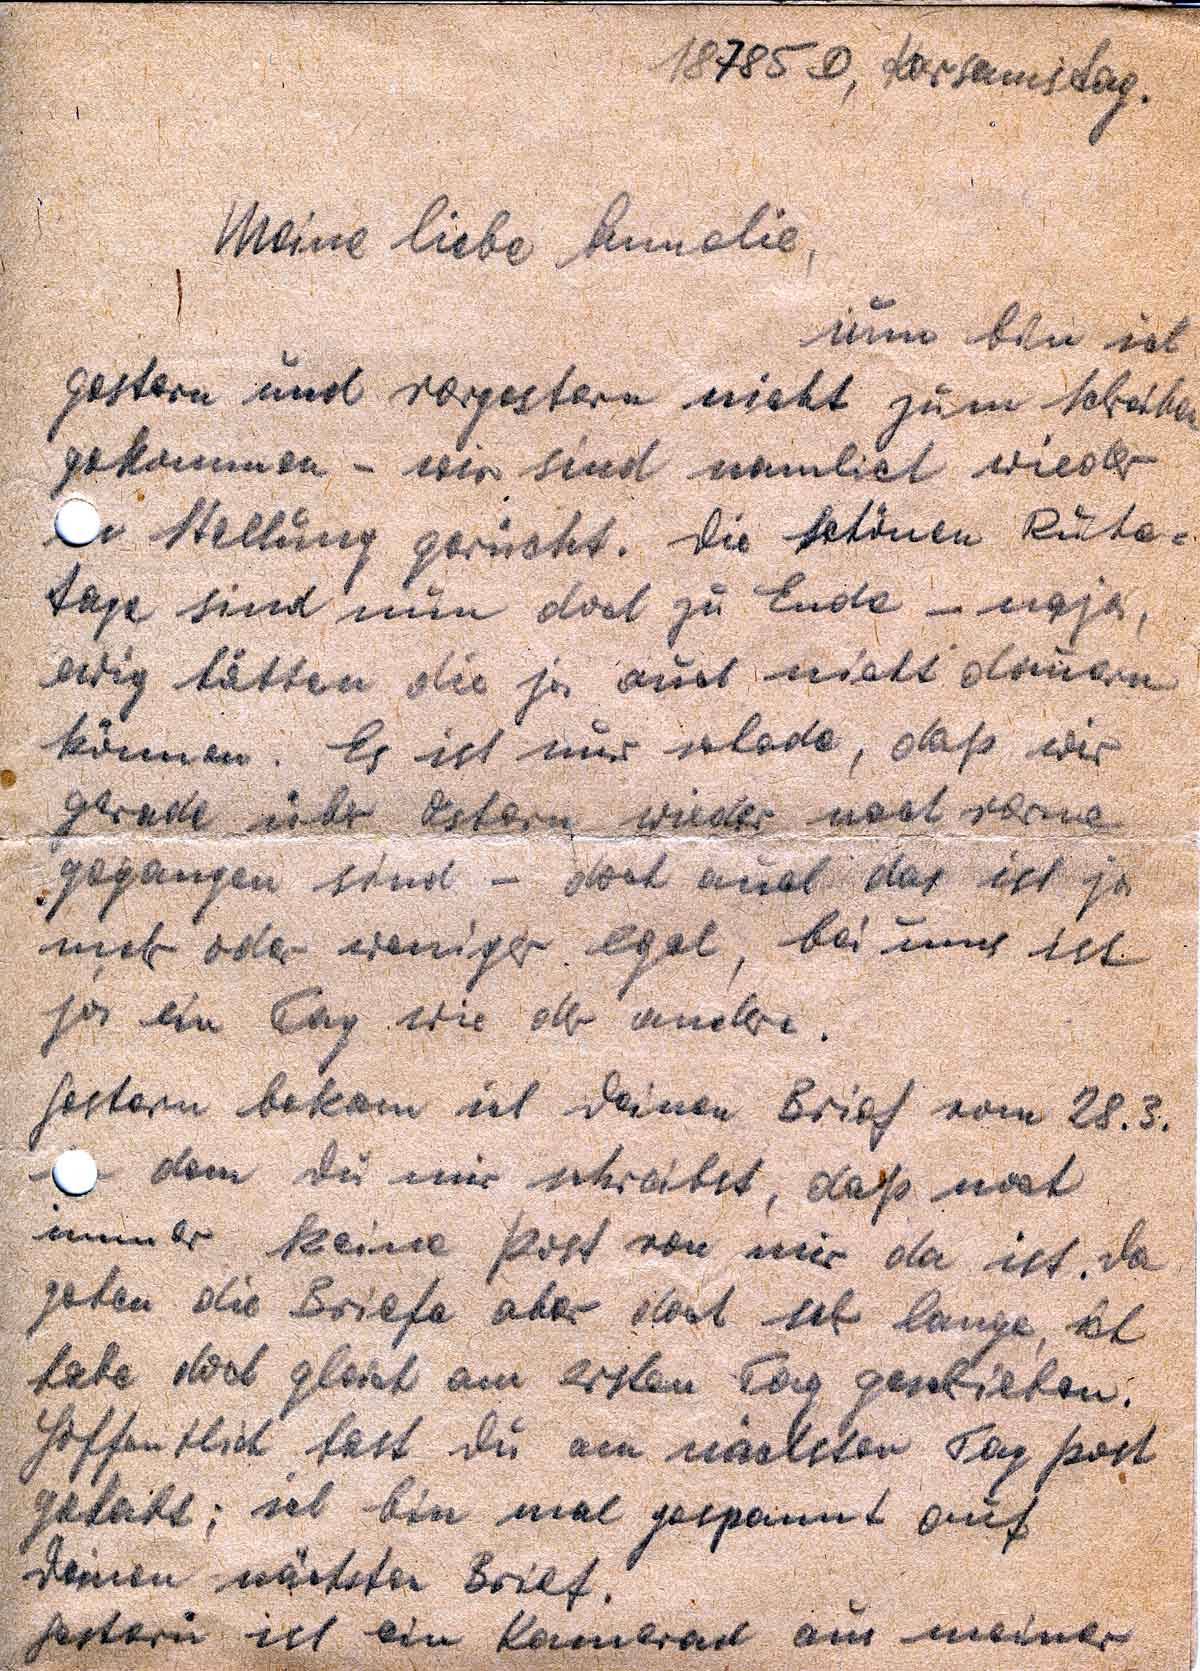 18785 D, Karsamstag.
Meine liebe Annelie,
nun bin ich
gestern und vorgestern nicht zum Schreiben
gekommen – wir sind nämlich wieder
in Stellung gerückt. Die schönen Ruhe-
tage sind nun doch zu Ende – naja,
ewig hätten die ja auch nicht dauern
können. Es ist nur schade, daß wir
gerade über Ostern wieder nach vorne
gegangen sind – doch auch das ist ja
mehr oder weniger egal, bei uns ist
ja ein Tag wie der andere.
Gestern bekam ich Deinen Brief vom 28.3.
in dem Du mir schreibst, daß noch
immer keine Post von mir da ist. Da
gehen die Briefe aber doch sehr lange, ich
habe doch gleich am ersten Tag geschrieben.
Hoffentlich hast Du am nächsten Tag Post
gehabt; ich bin mal gespannt auf
Deinen nächsten Brief.
Gestern ist ein Kamerad aus meiner